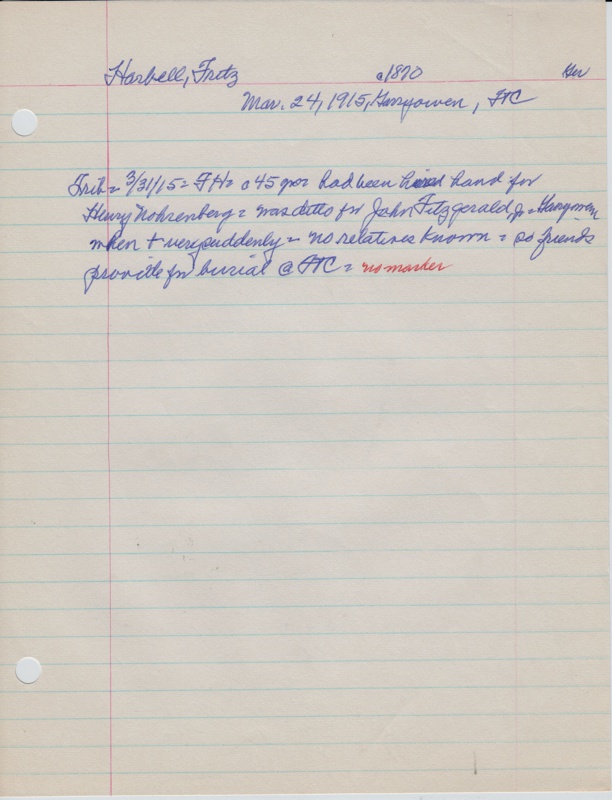 Harbell, Fritz c1870 Ger
Mar. 24, 1915, Garryowen, FTC
Trib = 3/31/15 = FH = c 45 yo = had been hired hand for
Henry Nohrenberg = was ditto for John Fitzgerald Jr = Garryowen
when + very suddenly = no relatives known = so friends
provide for burial @ FTC = no marker